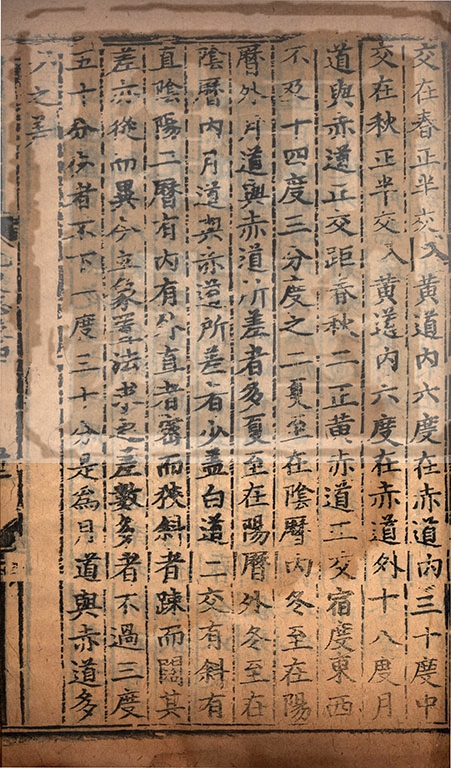 交在春正半交入黃道內六度在赤道內三十度中
交在秋正半交入黃道內六度在赤道外十八度月
道與赤道正交距春秋二正黃赤道正交宿度東西
不及十四度三分度之二夏至在陰曆內冬至在陽
曆外月道與赤道所差者多夏至在陽曆外冬至在
陰曆內月道與赤道所差者少蓋白道二交有斜有
直陰陽二曆有內有外直者密而狹斜者踈而闊其
差亦從而異今立象置法求之差數多者不過三度
五十分少者不下一度三十分是為月道與赤道多
少之差